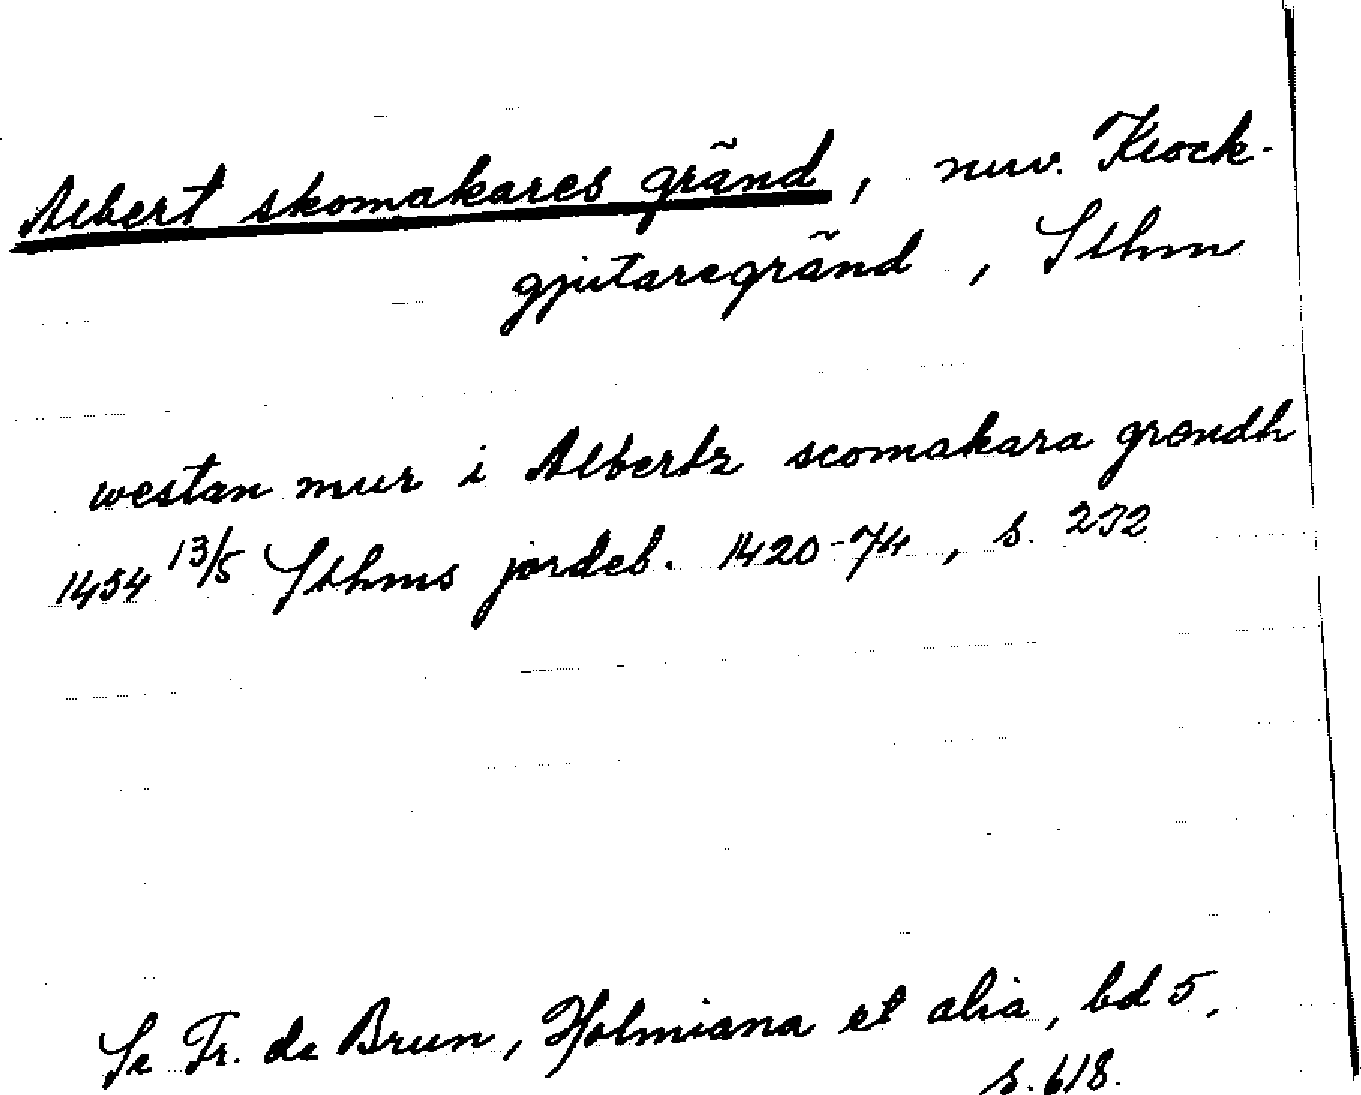 Albert skomakares gränd, nuv. Klock-
gjutaregränd, Sthm
westan mur i Albertz scomakara grendh
1454 13/5 Sthms jordeb. 1420-74, s. 232
Se Fr. de Brun, Holmiana et alia, bd 5,
s. 618.